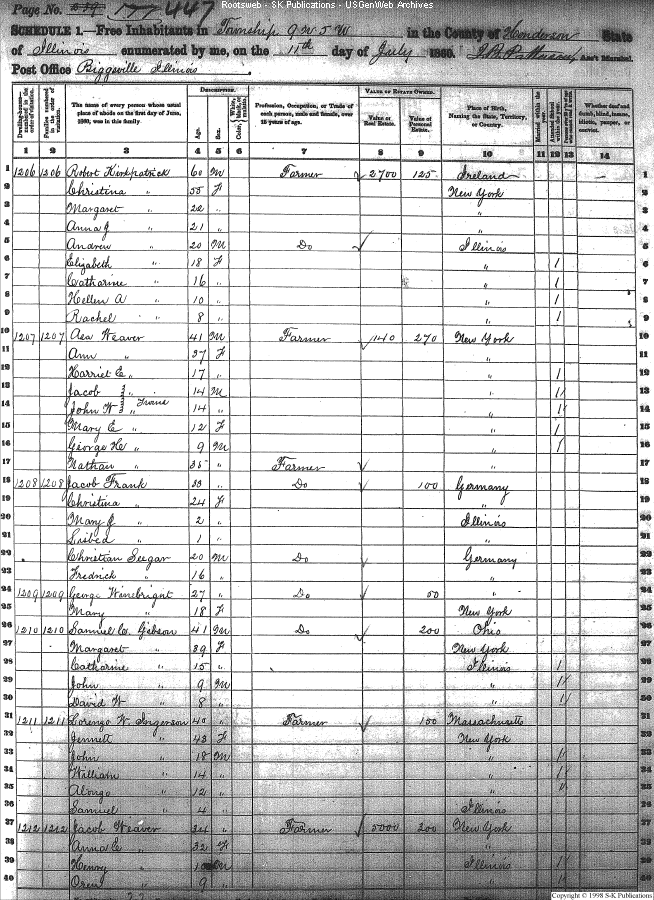 Rootsweb - SK Publications - USGenWeb Archives
Page No. 177 447
SCHEDULE 1.—Free Inhabitants in Township 9 N 5 W in the County of Henderson State
of Illinois enumerated by me, on the 11th day of July 1860. Ass't Marshal.
Post Office Biggsville Illinois
Dwelling-houses— numbered in the order of visitation. Families numbered in the order of visitation. The name of every person whose usual place of abode on the first day of June, 1860, was in this family. DESCRIPTION. Age. Sex. Color, White, black, or mulatto. Profession, Occupation, or Trade of each person, male and female, over 15 years of age. VALUE OF ESTATE OWNED. Value of Real Estate. Value of Personal Estate. Place of Birth, Naming the State, Territory, or Country. Married within the year. Attended School within the year. Whether deaf and dumb, blind, insane, idiotic, pauper, or convict.
1 2 3 4 5 6 7 8 9 10 11 12 13 14
1 1206 1206 Robert Kirkpatrick 60 M Farmer 2700 125 Ireland 1
2 Christina " 55 F New York 2
3 Margaret " 22 " " 3
4 Anna J " 21 " " 4
5 Andrew " 20 M Do Illinois 5
6 Elizabeth " 18 F " 1 6
7 Catharine " 16 " " 1 7
8 Hellen A " 10 " " 1 8
9 Rachel " 8 " " 1 9
10 1207 1207 Asa Weaver 41 M Farmer 140 270 New York 10
11 Ann " 37 F " 11
12 Harriet E " 17 " " 1 12
13 Jacob " 14 M " 1 13
14 John W " Twins 14 " " 1 14
15 Mary E " 12 F " 1 15
16 George H " 9 M " 1 16
17 Nathan " 35 " Farmer 17
18 1208 1208 Jacob Frank 33 " Do 100 Germany 18
19 Christina " 24 F " 19
20 Mary J " 2 " Illinois 20
21 " 1 " " 21
22 Christian Seegar 20 M Do Germany 22
23 Fredrick " 16 " " 23
24 1209 1209 George Winebright 27 " Do 50 " 24
25 Mary " 18 F New York 25
26 1210 1210 Samuel C. Gibson 41 M Do 200 Ohio 26
27 Margaret " 39 F New York 27
28 Catharine " 15 " Illinois 1 28
29 John " 9 M " 1 29
30 David W " 8 " " 1 30
31 1211 1211 Lorenzo W. Ingerson 40 " Farmer 100 Massachusetts 31
32 Jennett " 43 F New York 32
33 John " 18 M " 1 33
34 William " 14 " " 1 34
35 Alonzo " 12 " " 1 35
36 Samuel " 4 " Illinois 36
37 1212 1212 Jacob Weaver 34 " Farmer 5000 200 New York 37
38 Anna E " 32 F " 38
39 Henry " 10 M Illinois 1 39
40 Oren " 9 " " 1 40
Copyright © 1998 S-K Publications